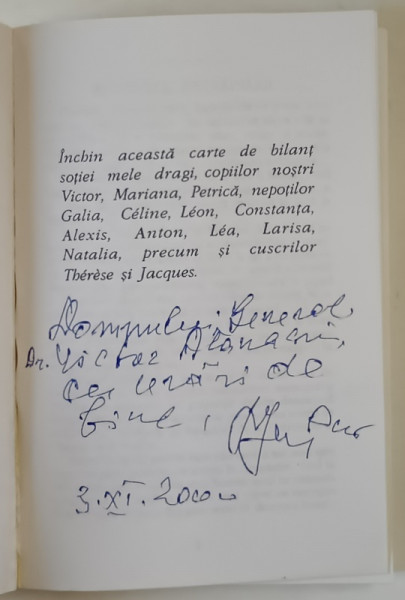 Închin această carte de bilanț
soției mele dragi, copiilor noștri
Victor, Mariana, Petrică, nepoților
Galia, Céline, Léon, Constanța,
Alexis, Anton, Léa, Larisa,
Natalia, precum și cuscrilor
Thérèse și Jacques.
Domnului General
Dr. Victor Atanasiu,
cu urări de
bine,
3.XI.2000